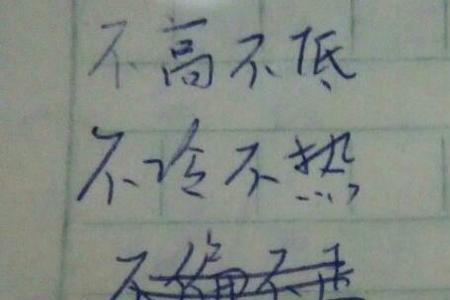 不高不低
不冷不热